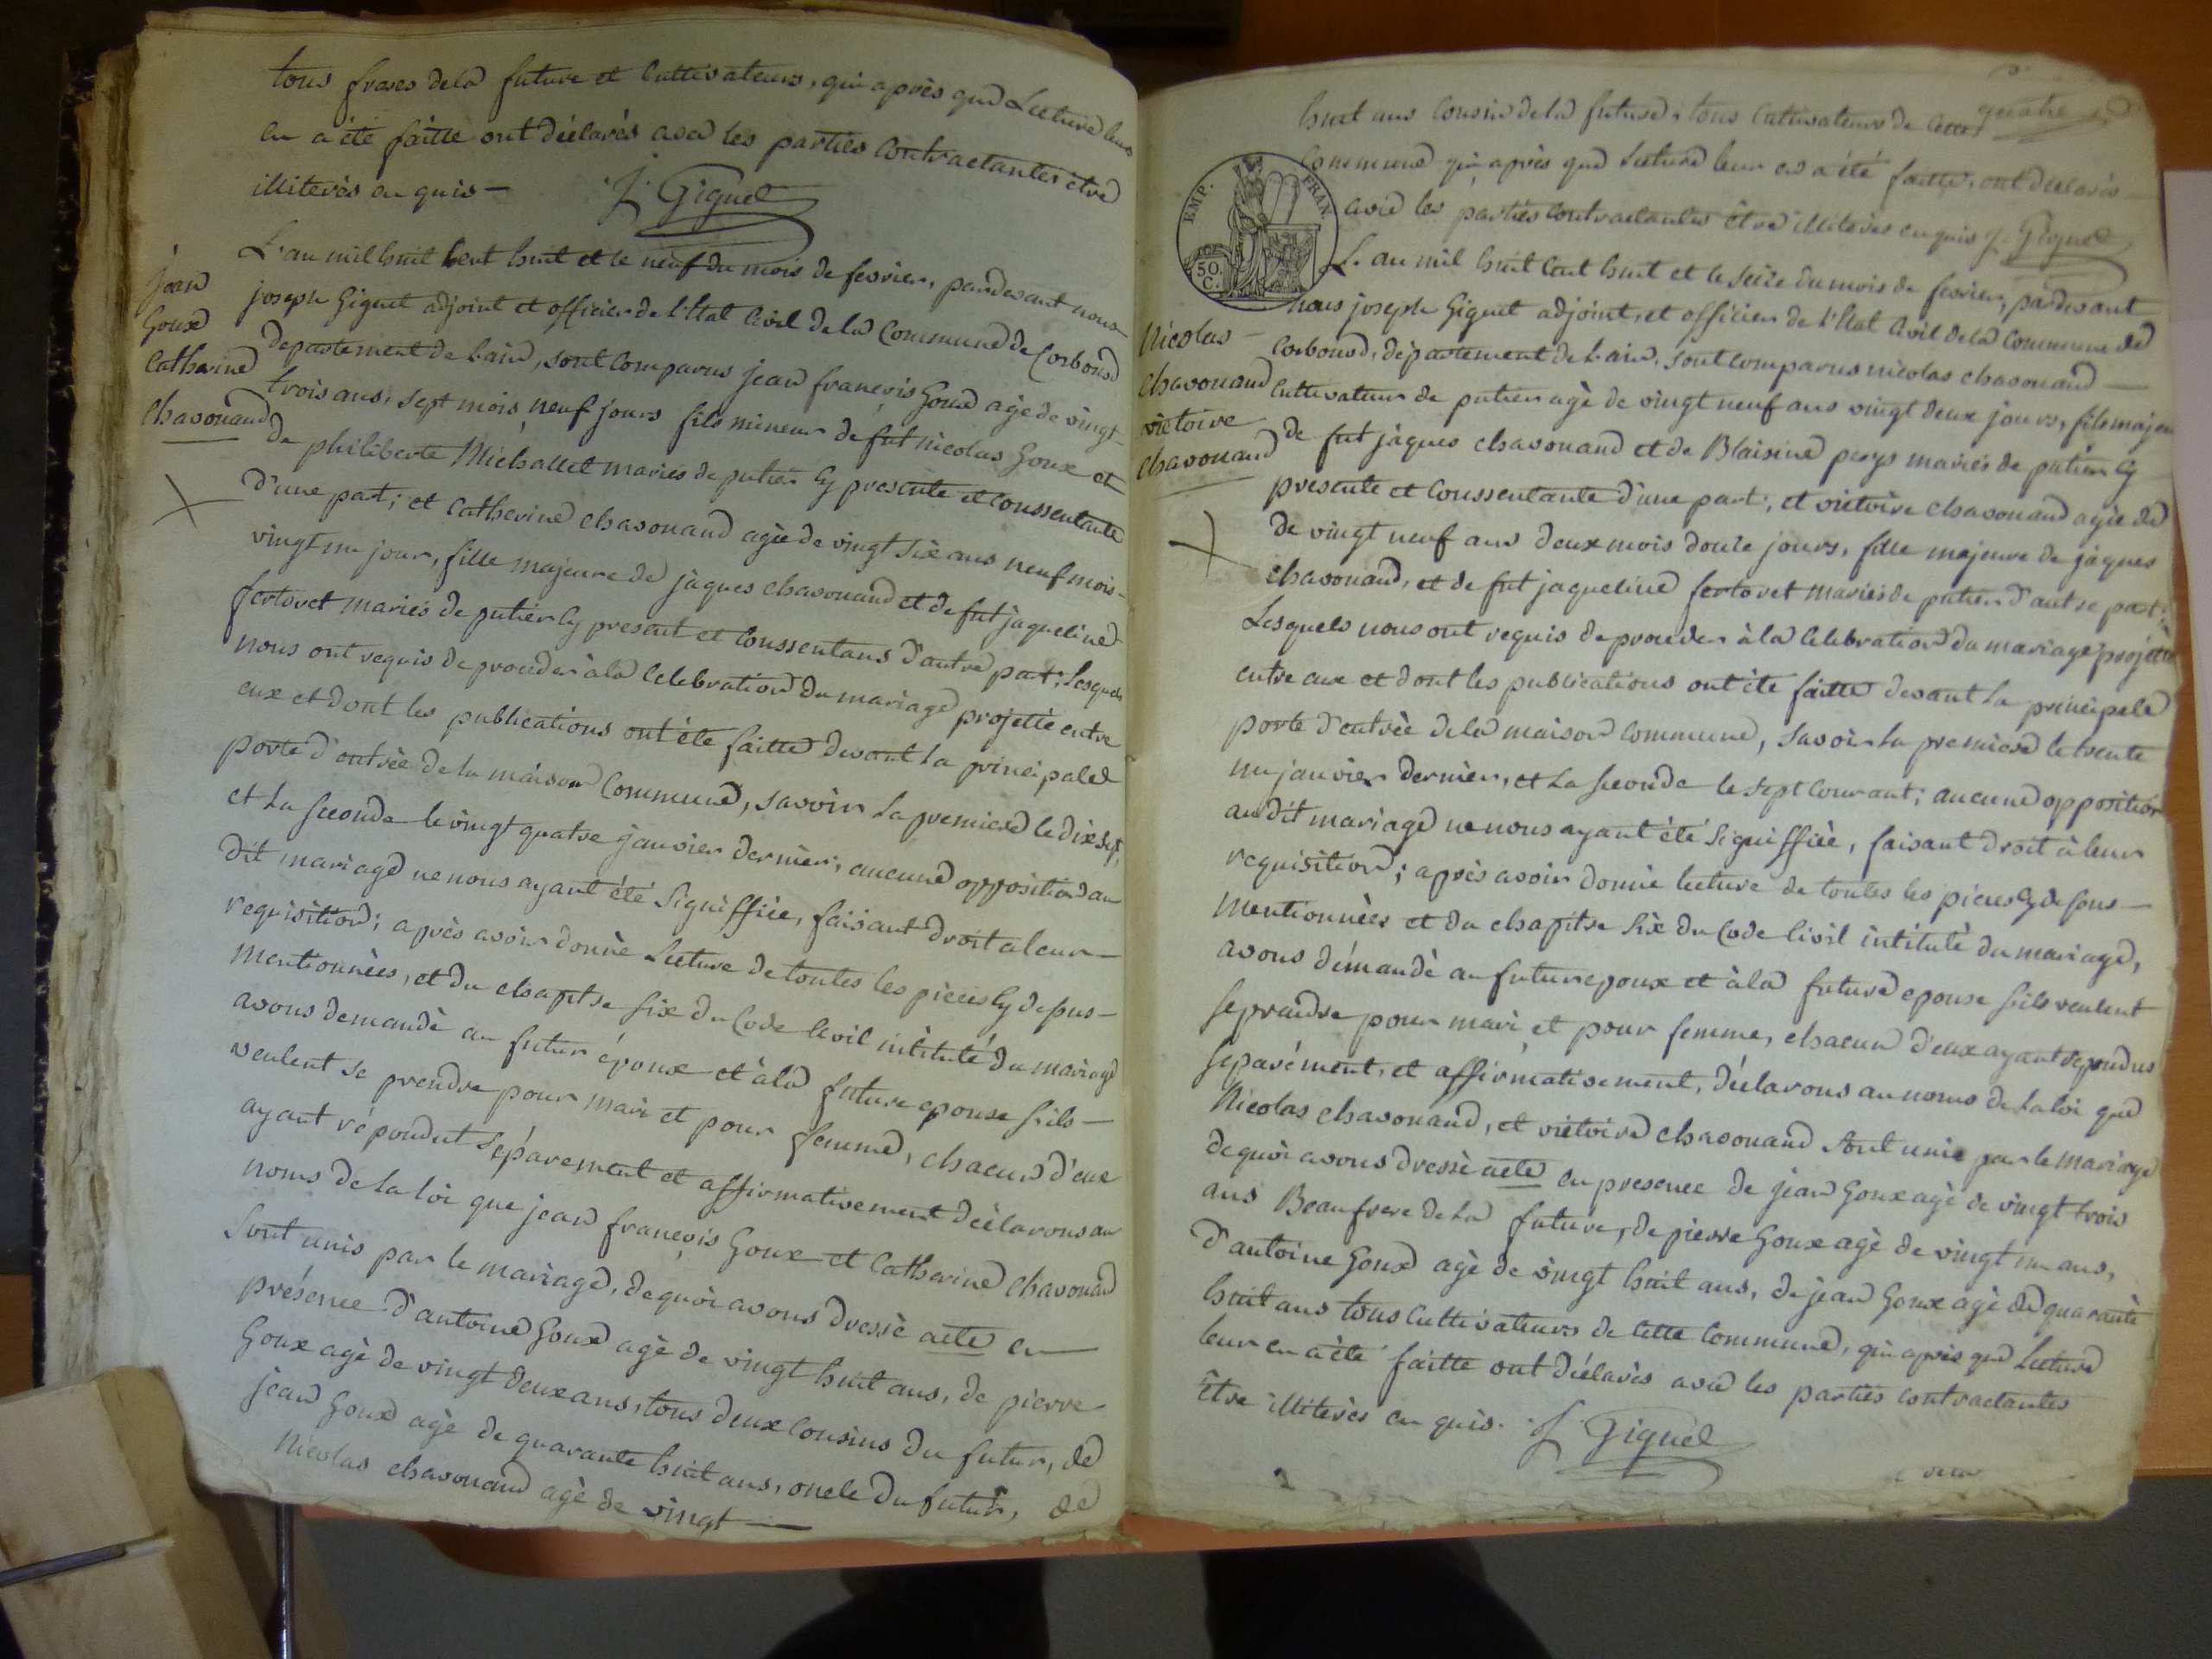 tous freres de la future et cultivateurs, qui après que Lecture leur
en a été faitte ont déclarés avec les parties contractantes être
illiterés en quis —
J. Giguet
jean
Goux
Catherine
chavouand
L'an mil huit cent huit et le neuf du mois de fevrier, pardevant nous
joseph Giguet adjoint et officier de l'Etat Civil de la Commune de Corbonod
departement de L'ain, sont comparus jean françois Goux agé de vingt-
trois ans, sept mois neuf jours fils mineur de fut nicolas Goux et
de philiberte Michallet mariés de putier Cy presente et conssentante
d'une part; et Catherine chavouand agée de vingt six ans neuf mois-
vingt un jour, fille majeure de jaques chavouand et de fut jaqueline
fertoret mariés de putier Cy present et conssentans d'autre part; Lesquels
nous ont requis de proceder à la Celebration du mariage projetté entre
eux et dont les publications ont été faitte devant la principale
porte d'entrée de la maison Commune, savoir La premiere le dix sept,
et La seconde le vingt quatre janvier dernier, aucune opposition au
dit mariage ne nous ayant été signiffiée, faisant droit a leur —
requisition; après avoir donné Lecture de toutes les pieces Cy desus —
mentionnées, et du chapitre six du Code Civil intitulé du mariage
avons demandé au futur époux et à la future epouse s'ils —
veulent se prendre pour mari et pour femme, chacun d'eux
ayant répondut séparement et affirmativement déclarons au
noms de la loi que jean françois Goux et Catherine chavouand
sont unis par le mariage, de quoi avons dressé acte en
présence d'antoine Goux agé de vingt huit ans, de pierre
Goux agé de vingt deux ans, tous deux Cousins du futur, de
jean Goux agé de quarante huit ans, oncle du futur, de
Nicolas chavouand agé de vingt —
quatre
huit ans Cousin de la future, tous Cultivateurs de Cette
Commune qui après que Lecture leur en a été faitte, ont déclarés
avec les parties contractantes être illiterés en quis J. Giguet
EMP. FRAN.
50. C.
Nicolas —
chavouand
victoire
chavouand
L'an mil huit Cent huit et le seize du mois de fevrier, pardevant
nous joseph Giguet adjoint, et officier de l'Etat Civil de la Commune de
Corbonod, département de L'ain, sont comparus nicolas chavouand —
Cultivateur de putier agé de vingt neuf ans vingt deux jours, fils majeur
de fut jàques chavouand et de Blaisine pays mariés de putier Cy
presente et Conssentante d'une part; et victoire chavouand agée de
de vingt neuf ans deux mois douze jours, fille majeure de jàques
chavouand, et de fut jaqueline fertoret mariés de putier d'autre part;
Lesquels nous ont requis de proceder à la Celebration du mariage projetté
entre eux et dont les publications ont été faitte devant La principale
porte d'entrée de la maison Commune, savoir La premiere le trente
un janvier dernier, et La seconde le sept Courant; aucune opposition
audit mariage ne nous ayant été signiffiée, faisant droit à leur
requisition; après avoir donné lecture de toutes les pieces Cy desus —
mentionnées et du chapitre six du Code Civil intitulé du mariage,
avons démandé au futur epoux et à la future epouse s'ils veulent
se prendre pour mari et pour femme, chacun d'eux ayant repondus
séparément, et affirmativement, déclarons au noms de la loi que
Nicolas chavouand, et victoire chavouand sont unie par le mariage
de quoi avons dressé acte en presence de jean Goux agé de vingt trois
ans Beaufrere de La future, de pierre Goux agé de vingt un ans,
d'antoine Goux agé de vingt huit ans, de jean Goux agé de quarante
huit ans tous Cultivateurs de Cette Commune, qui après que Lecture
leur en a été faitte ont déclarés avec les parties contractantes
être illiterés en quis.
J. Giguet